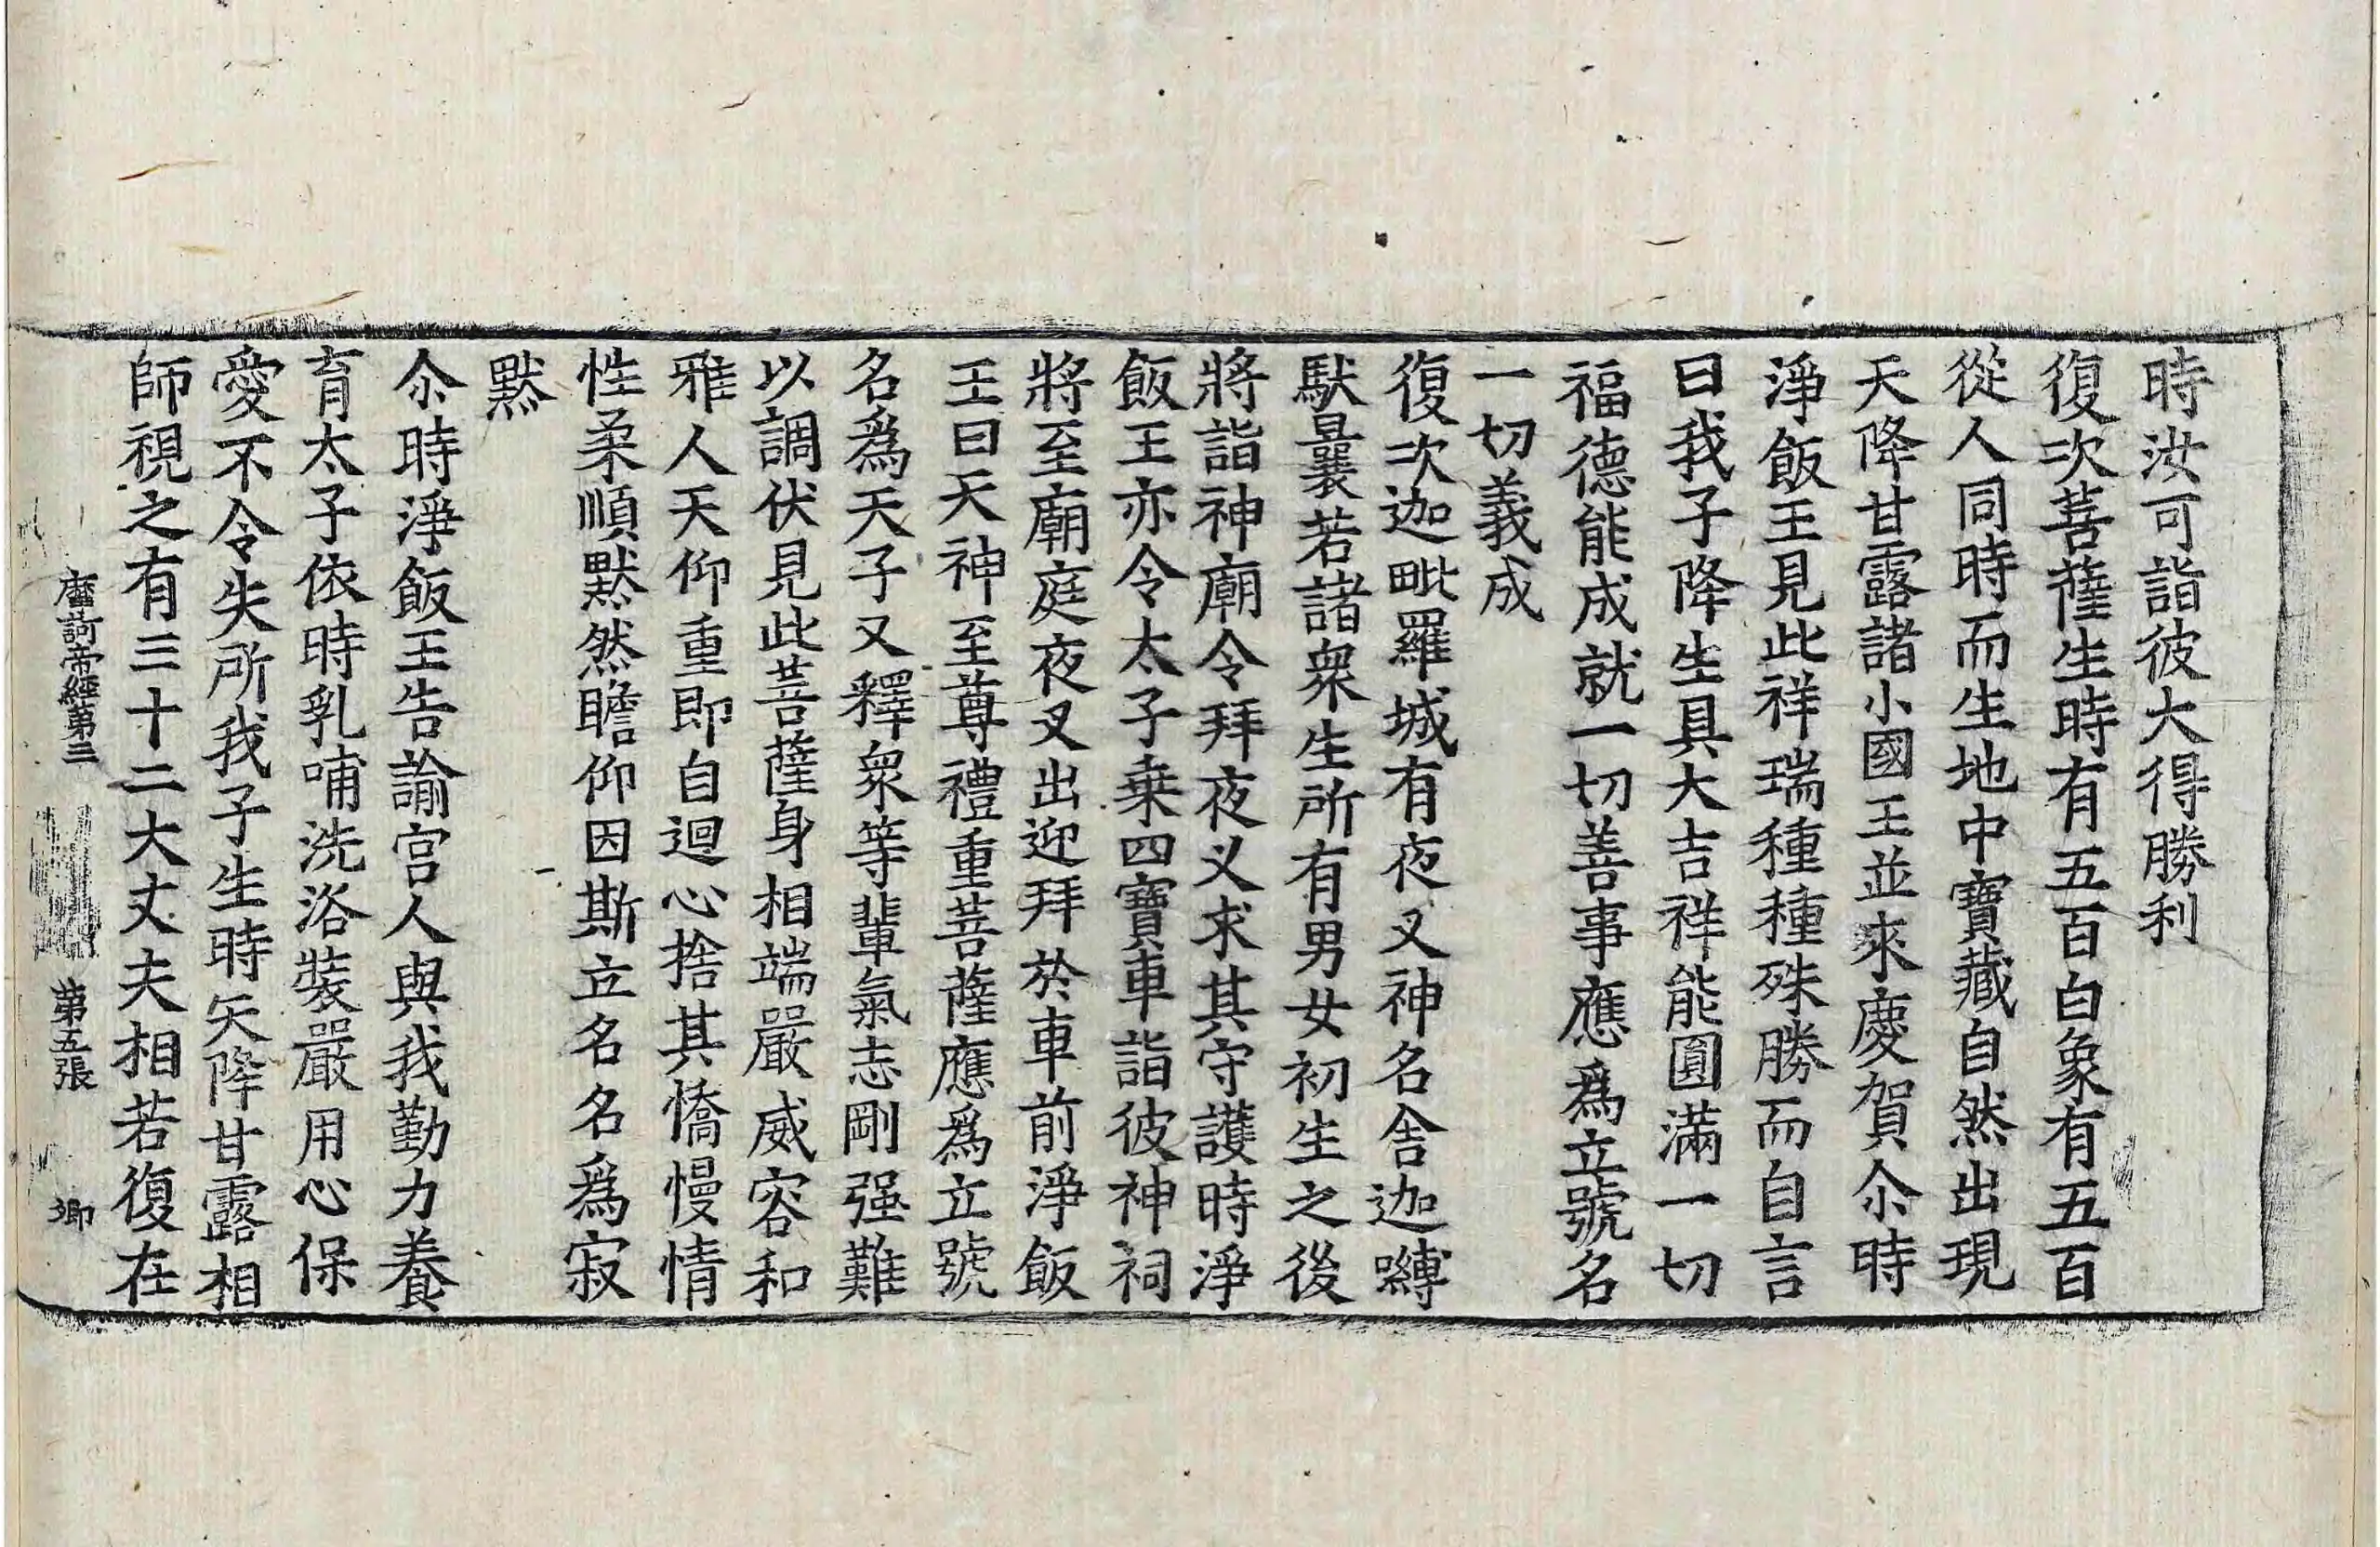 時汝可詣彼大得勝利
復次菩薩生時有五百白象有五百
從人同時而生地中寶藏自然出現
天降甘露諸小國王並來慶賀尒時
淨飯王見此祥瑞種種殊勝而自言
曰我子降生具大吉祥能圓滿一切
福德能成就一切善事應爲立號名
一切義成
復次迦毗羅城有夜叉神名舍迦嚩
馱曩若諸衆生所有男女初生之後
將詣神廟令拜夜叉求其守護時淨
飯王亦令太子乗四寶車詣彼神祠
將至廟庭夜叉出迎拜於車前淨飯
王曰天神至尊禮重菩薩應爲立號
名爲天子又釋衆等輩氣志剛强難
以調伏見此菩薩身相端嚴威容和
雅人天仰重即自迴心捨其憍慢情
性柔順默然瞻仰因斯立名名爲寂
默
尒時淨飯王告諭宫人與我勤力養
育太子依時乳哺洗浴裝嚴用心保
愛不令失所我子生時天降甘露相
師視之有三十二大丈夫相若復在
摩訶帝經第三 第五張 卿